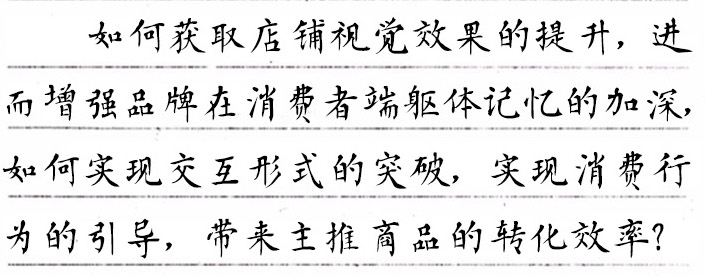 如何获取店铺视觉效果的提升，进
而增强品牌在消费者端躯体记忆的加深，
如何实现交互形式的突破，实现消费行
为的引导，带来主推商品的转化效率？